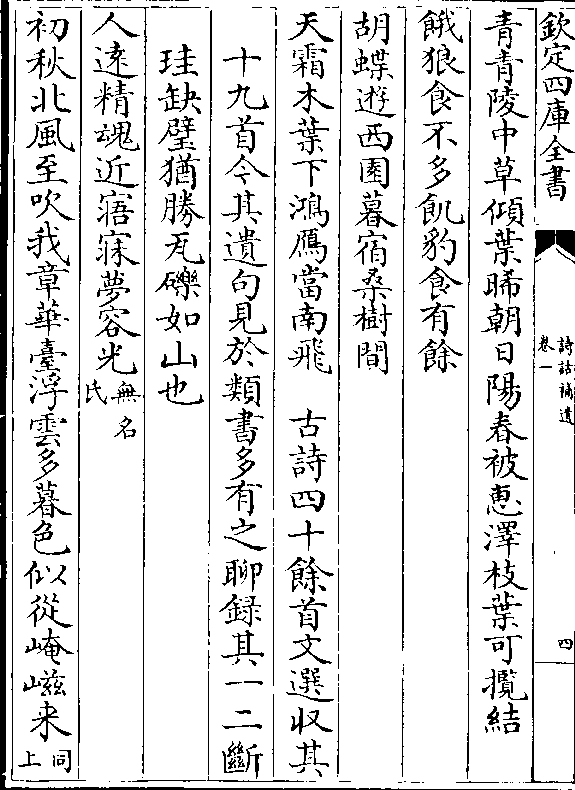 欽定四庫全書
詩話補遺
卷一
四
青青陵中草傾葉晞朝日陽春被惠澤枝葉可攬結
餓狼食不多飢豹食有餘
胡蝶遊西園暮宿桑樹間
天霜木葉下鴻鴈當南飛　古詩四十餘首文選収其
十九首今其遺句見於類書多有之聊録其一二斷
珪缺璧猶勝瓦礫如山也
人遠精魂近寤寐夢容光無名氏
初秋北風至吹我章華臺浮雲多暮色似從崦嵫来同上